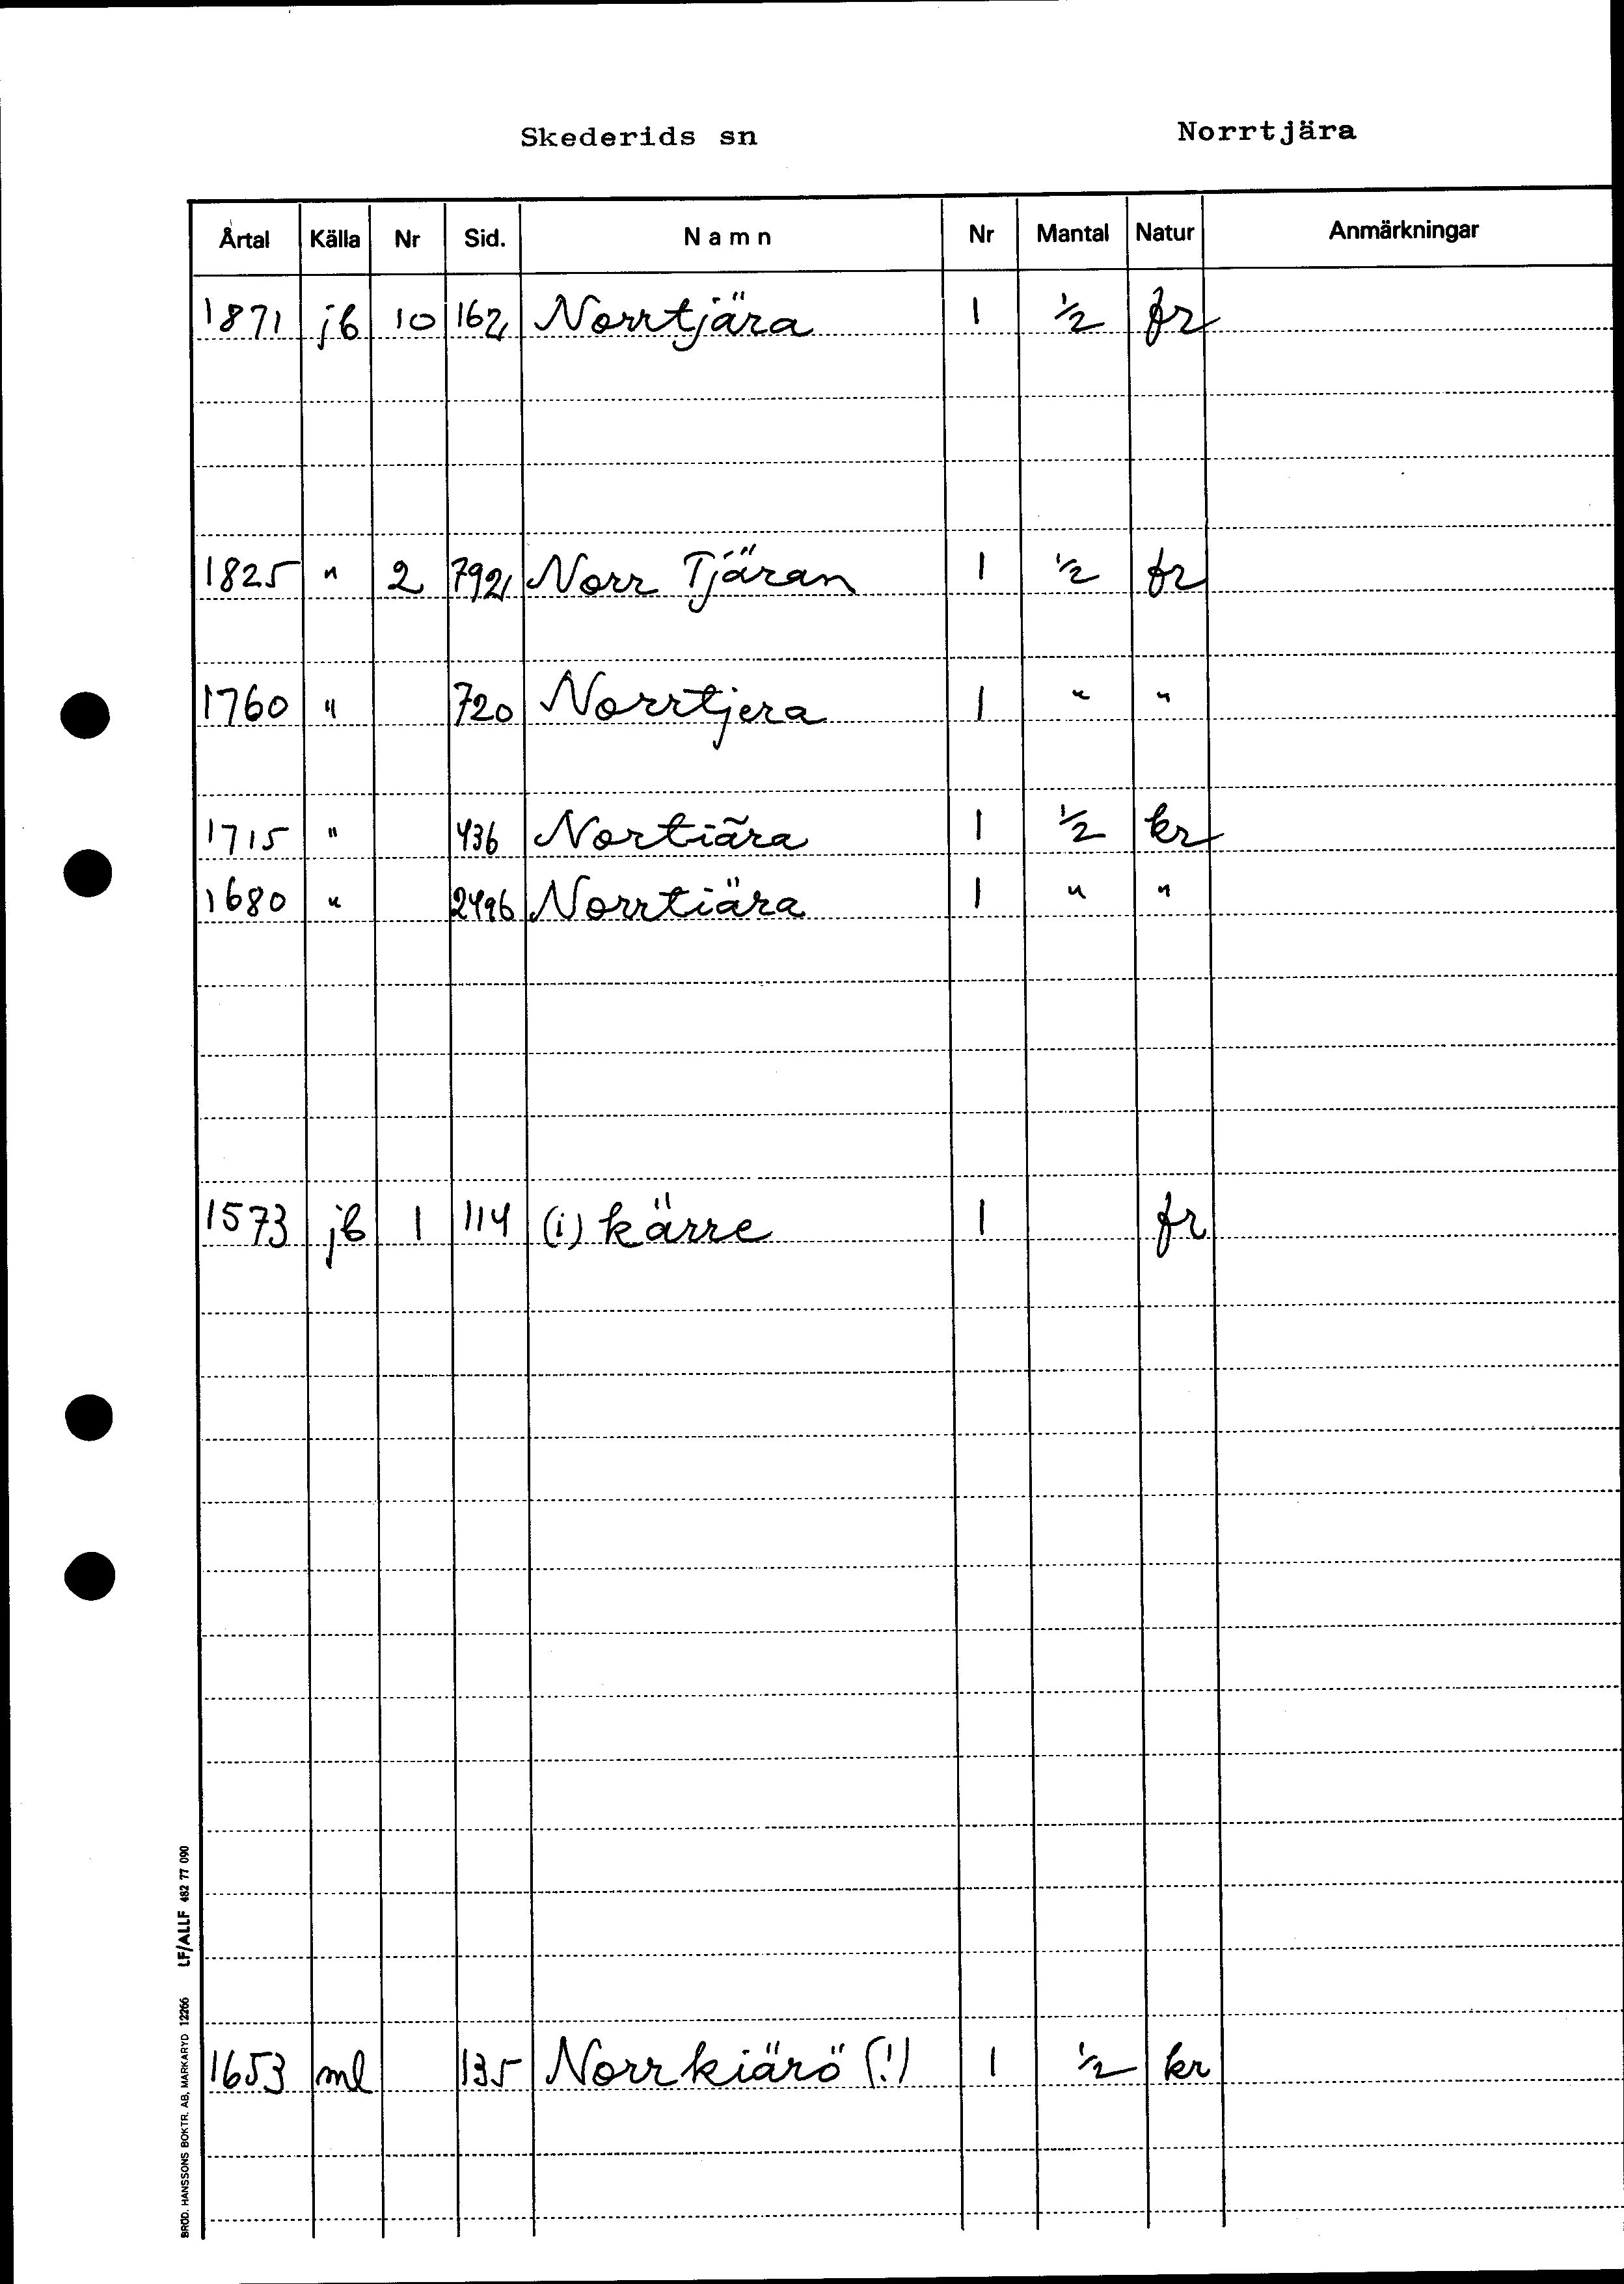 Skederids sn Norrtjära
Årtal Källa Nr Sid. Namn Nr Mantal Natur Anmärkningar
1871 jb 10 162 Norrtjära 1 1/2 fr
1825 " 2 792 Norr Tjäran 1 1/2 fr
1760 " 720 Norrtjera 1 " "
1715 " 436 Nortiära 1 1/2 kr
1680 " 2496 Norrtiära 1 " "
1573 jb 1 114 (i) kärre 1 fr
1653 ml 135 Norrkiärö (!) 1 1/2 kr
BRÖD. HANSSONS BOKTR. AB, MARKARYD 12266 LF/ALLF 482 77 090